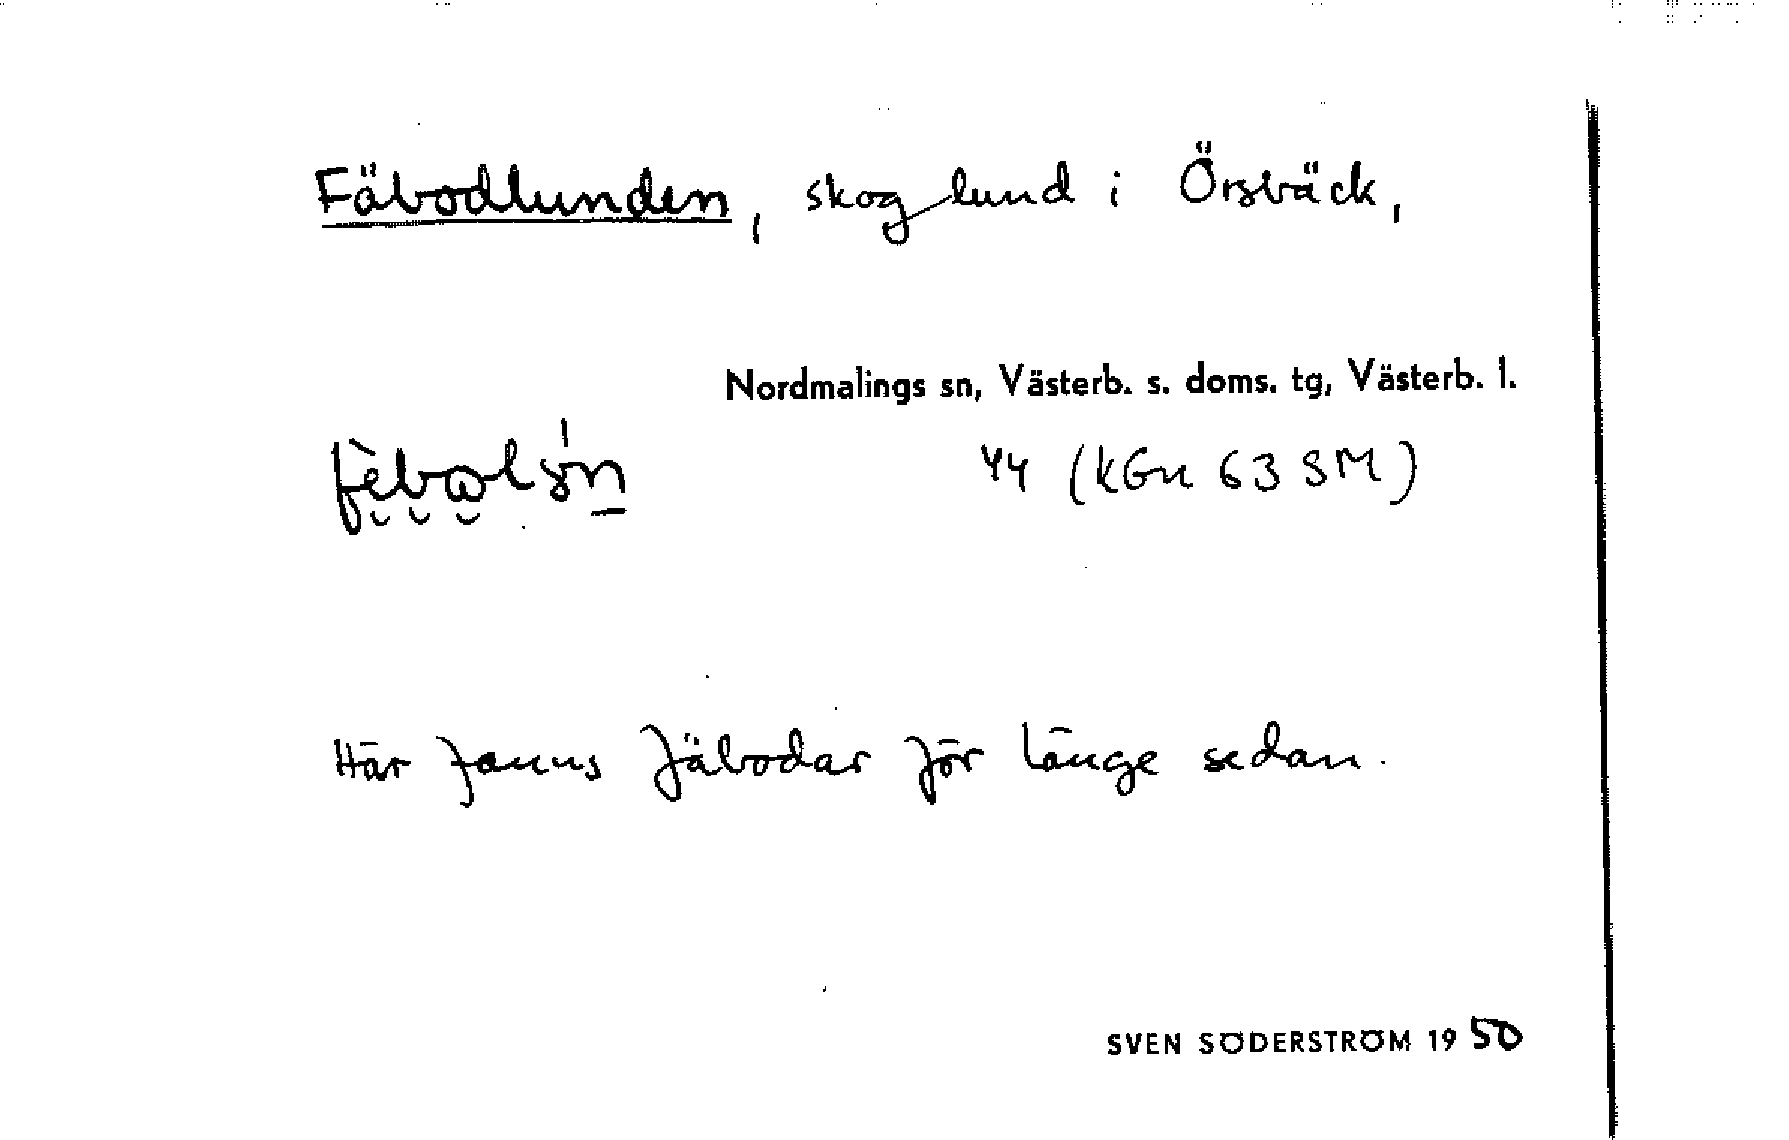 Fäbodlunden, skoglund i Örsbäck,
Nordmalings sn, Västerb. s. doms. tg, Västerb. l.
44 (KGn 63 SM)
Här fanns fäbodar för länge sedan.
SVEN SÖDERSTRÖM 1950